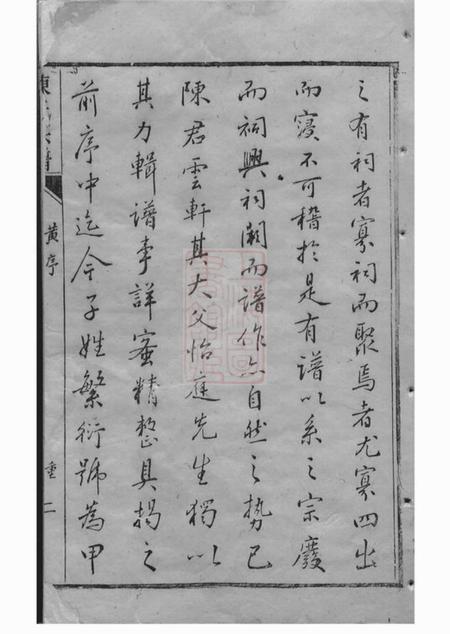 之有祠者寡祠而聚焉者尤寡四出
而寢不可稽於是有譜以系之宗廢
而祠興祠闕而譜作亦自然之勢已
陳君雲軒其大父怡庭先生獨以
其力輯譜事詳審精整具揭之
前序中迄今子姓繁衍號為甲
陳氏宗譜
黄序
二